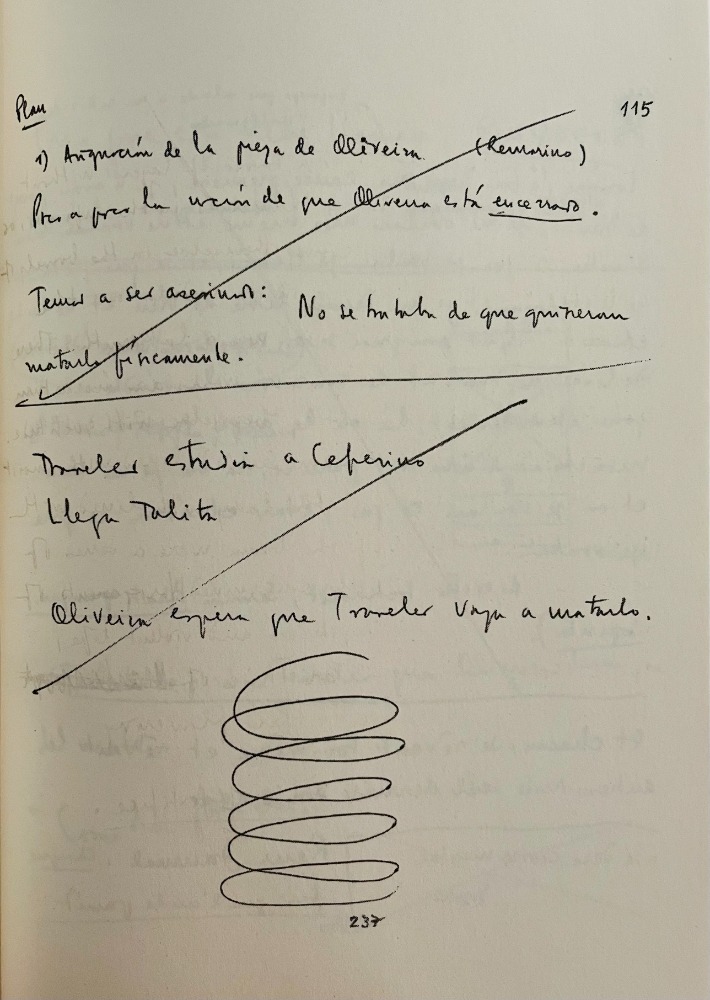 Plan
115
1) Angustia de la pieza de Oliveira. (Remorino)
Poco a poco la noción de que Oliveira está encerrado.
Temor a ser asesinado: No se trataba de que quisieran
matarlo físicamente.
Traveler estudia a Ceferino
Llega Talita
Oliveira espera que Traveler vaya a matarlo.
237